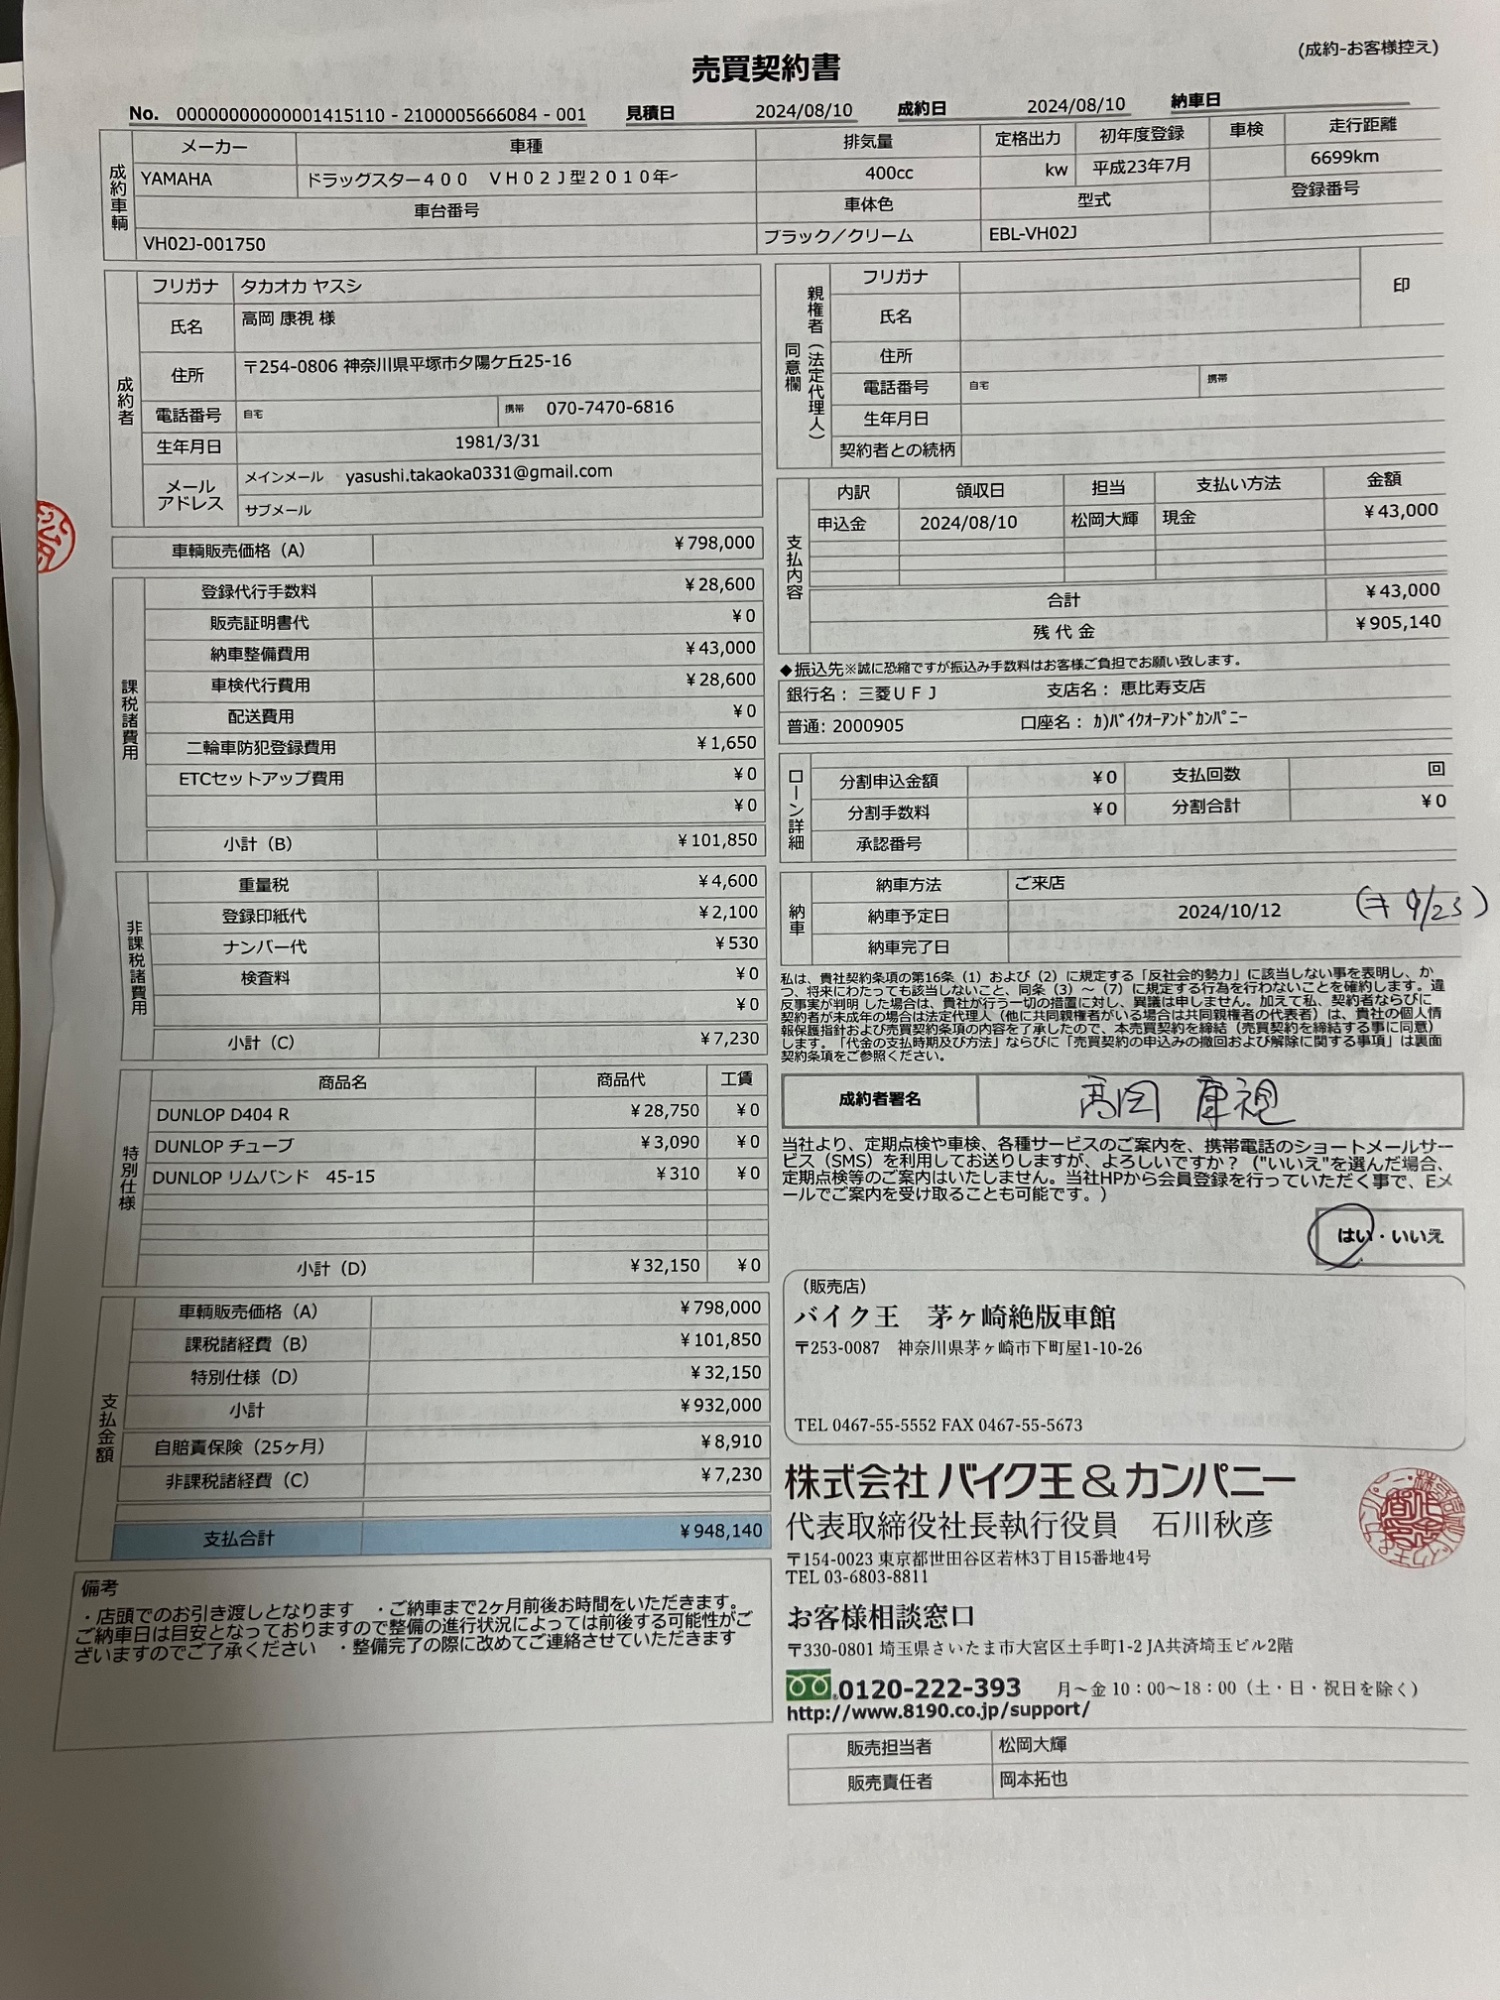 (成約-お客様控え)
売買契約書
No. 00000000000001415110 - 2100005666084 - 001 見積日 2024/08/10 成約日 2024/08/10 納車日
成約車輌
メーカー 車種 排気量 定格出力 初年度登録 車検 走行距離
YAMAHA ドラッグスター400 VH02J型2010年- 400cc kw 平成23年7月 6699km
車台番号 車体色 型式 登録番号
VH02J-001750 ブラック/クリーム EBL-VH02J
成約者
フリガナ タカオカ ヤスシ
氏名 高岡 康視 様
住所 〒254-0806 神奈川県平塚市夕陽ケ丘25-16
電話番号 自宅 携帯 070-7470-6816
生年月日 1981/3/31
メールアドレス メインメール yasushi.takaoka0331@gmail.com
サブメール
車輌販売価格(A) ¥798,000
課税諸費用
登録代行手数料 ¥28,600
販売証明書代 ¥0
納車整備費用 ¥43,000
車検代行費用 ¥28,600
配送費用 ¥0
二輪車防犯登録費用 ¥1,650
ETCセットアップ費用 ¥0
¥0
小計(B) ¥101,850
非課税諸費用
重量税 ¥4,600
登録印紙代 ¥2,100
ナンバー代 ¥530
検査料 ¥0
¥0
小計(C) ¥7,230
特別仕様
商品名 商品代 工賃
DUNLOP D404 R ¥28,750 ¥0
DUNLOP チューブ ¥3,090 ¥0
DUNLOP リムバンド 45-15 ¥310 ¥0
小計(D) ¥32,150 ¥0
支払金額
車輌販売価格(A) ¥798,000
課税諸経費(B) ¥101,850
特別仕様(D) ¥32,150
小計 ¥932,000
自賠責保険(25ヶ月) ¥8,910
非課税諸経費(C) ¥7,230
支払合計 ¥948,140
備考
・店頭でのお引き渡しとなります ・ご納車まで2ヶ月前後お時間をいただきます。
ご納車日は目安となっておりますので整備の進行状況によっては前後する可能性がご
ざいますのでご了承ください ・整備完了の際に改めてご連絡させていただきます
親権者(法定代理人)同意欄
フリガナ 印
氏名
住所
電話番号 自宅 携帯
生年月日
契約者との続柄
支払内容
内訳 領収日 担当 支払い方法 金額
申込金 2024/08/10 松岡大輝 現金 ¥43,000
合計 ¥43,000
残代金 ¥905,140
◆振込先※誠に恐縮ですが振込み手数料はお客様ご負担でお願い致します。
銀行名: 三菱UFJ 支店名: 恵比寿支店
普通: 2000905 口座名: カ)バイクオーアンドカンパニー
ローン詳細
分割申込金額 ¥0 支払回数 回
分割手数料 ¥0 分割合計 ¥0
承認番号
納車
納車方法 ご来店
納車予定日 2024/10/12 9/23
納車完了日
私は、貴社契約条項の第16条(1)および(2)に規定する「反社会的勢力」に該当しない事を表明し、か
つ、将来にわたっても該当しないこと、同条(3)~(7)に規定する行為を行わないことを確約します。違
反事実が判明した場合は、貴社が行う一切の措置に対し、異議は申しません。加えて私、契約者ならびに
契約者が未成年の場合は法定代理人(他に共同親権者がいる場合は共同親権者の代表者)は、貴社の個人情
報保護指針および売買契約条項の内容を了承したので、本売買契約を締結(売買契約を締結する事に同意)
します。「代金の支払時期及び方法」ならびに「売買契約の申込みの撤回および解除に関する事項」は裏面
契約条項をご参照ください。
成約者署名 高岡 康視
当社より、定期点検や車検、各種サービスのご案内を、携帯電話のショートメールサー
ビス(SMS)を利用してお送りしますが、よろしいですか?("いいえ"を選んだ場合、
定期点検等のご案内はいたしません。当社HPから会員登録を行っていただく事で、Eメ
ールでご案内を受け取ることも可能です。)
はい・いいえ
(販売店)
バイク王 茅ヶ崎絶版車館
〒253-0087 神奈川県茅ヶ崎市下町屋1-10-26
TEL 0467-55-5552 FAX 0467-55-5673
株式会社 バイク王&カンパニー
代表取締役社長執行役員 石川秋彦
〒154-0023 東京都世田谷区若林3丁目15番地4号
TEL 03-6803-8811
お客様相談窓口
〒330-0801 埼玉県さいたま市大宮区土手町1-2 JA共済埼玉ビル2階
0120-222-393 月~金 10:00~18:00(土・日・祝日を除く)
http://www.8190.co.jp/support/
販売担当者 松岡大輝
販売責任者 岡本拓也